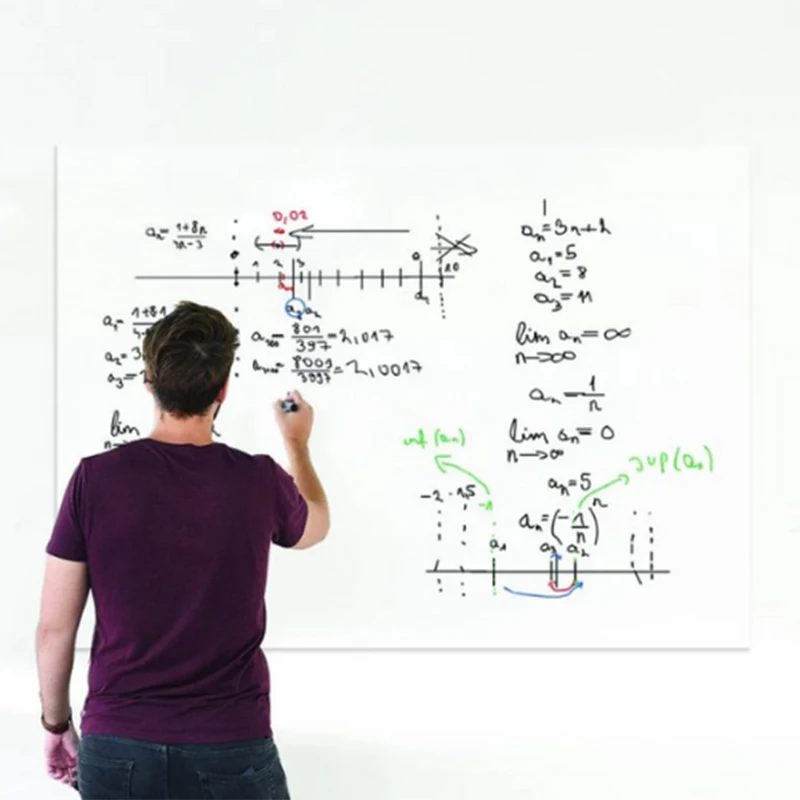 0,02
aₙ= (1+8n)/(4n-3)
1 2 3 a 10
aₙ
a₃ a₂ a₁
a₁= (1+8·1)/
a₂= 3
a₃=
a₁₀₀= 801/397 = 2,017
a₁₀₀₀= 8001/3997 = 2,0017
lim
n→
aₙ=3n+2
a₁=5
a₂=8
a₃=11
lim aₙ=∞
n→∞
aₙ= 1/n
lim aₙ=0
n→∞
inf(aₙ)
sup(aₙ)
aₙ=5
-2 -1,5 -1
aₙ=(-1/n)ⁿ
a₁ a₃ a₂